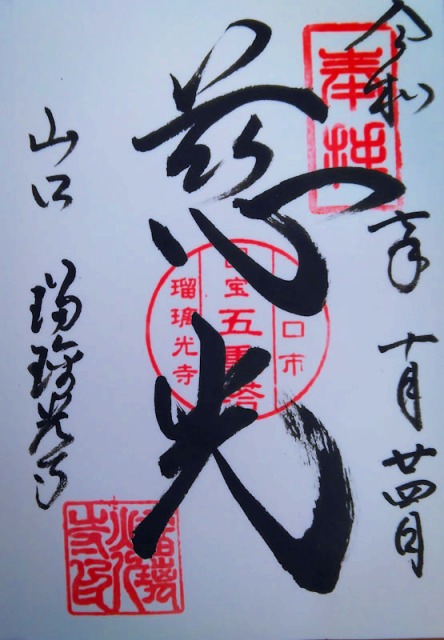 奉拝
令和 年 十月廿四日
慈光
口市
国宝 五重塔
瑠璃光寺
山口 瑠璃光寺